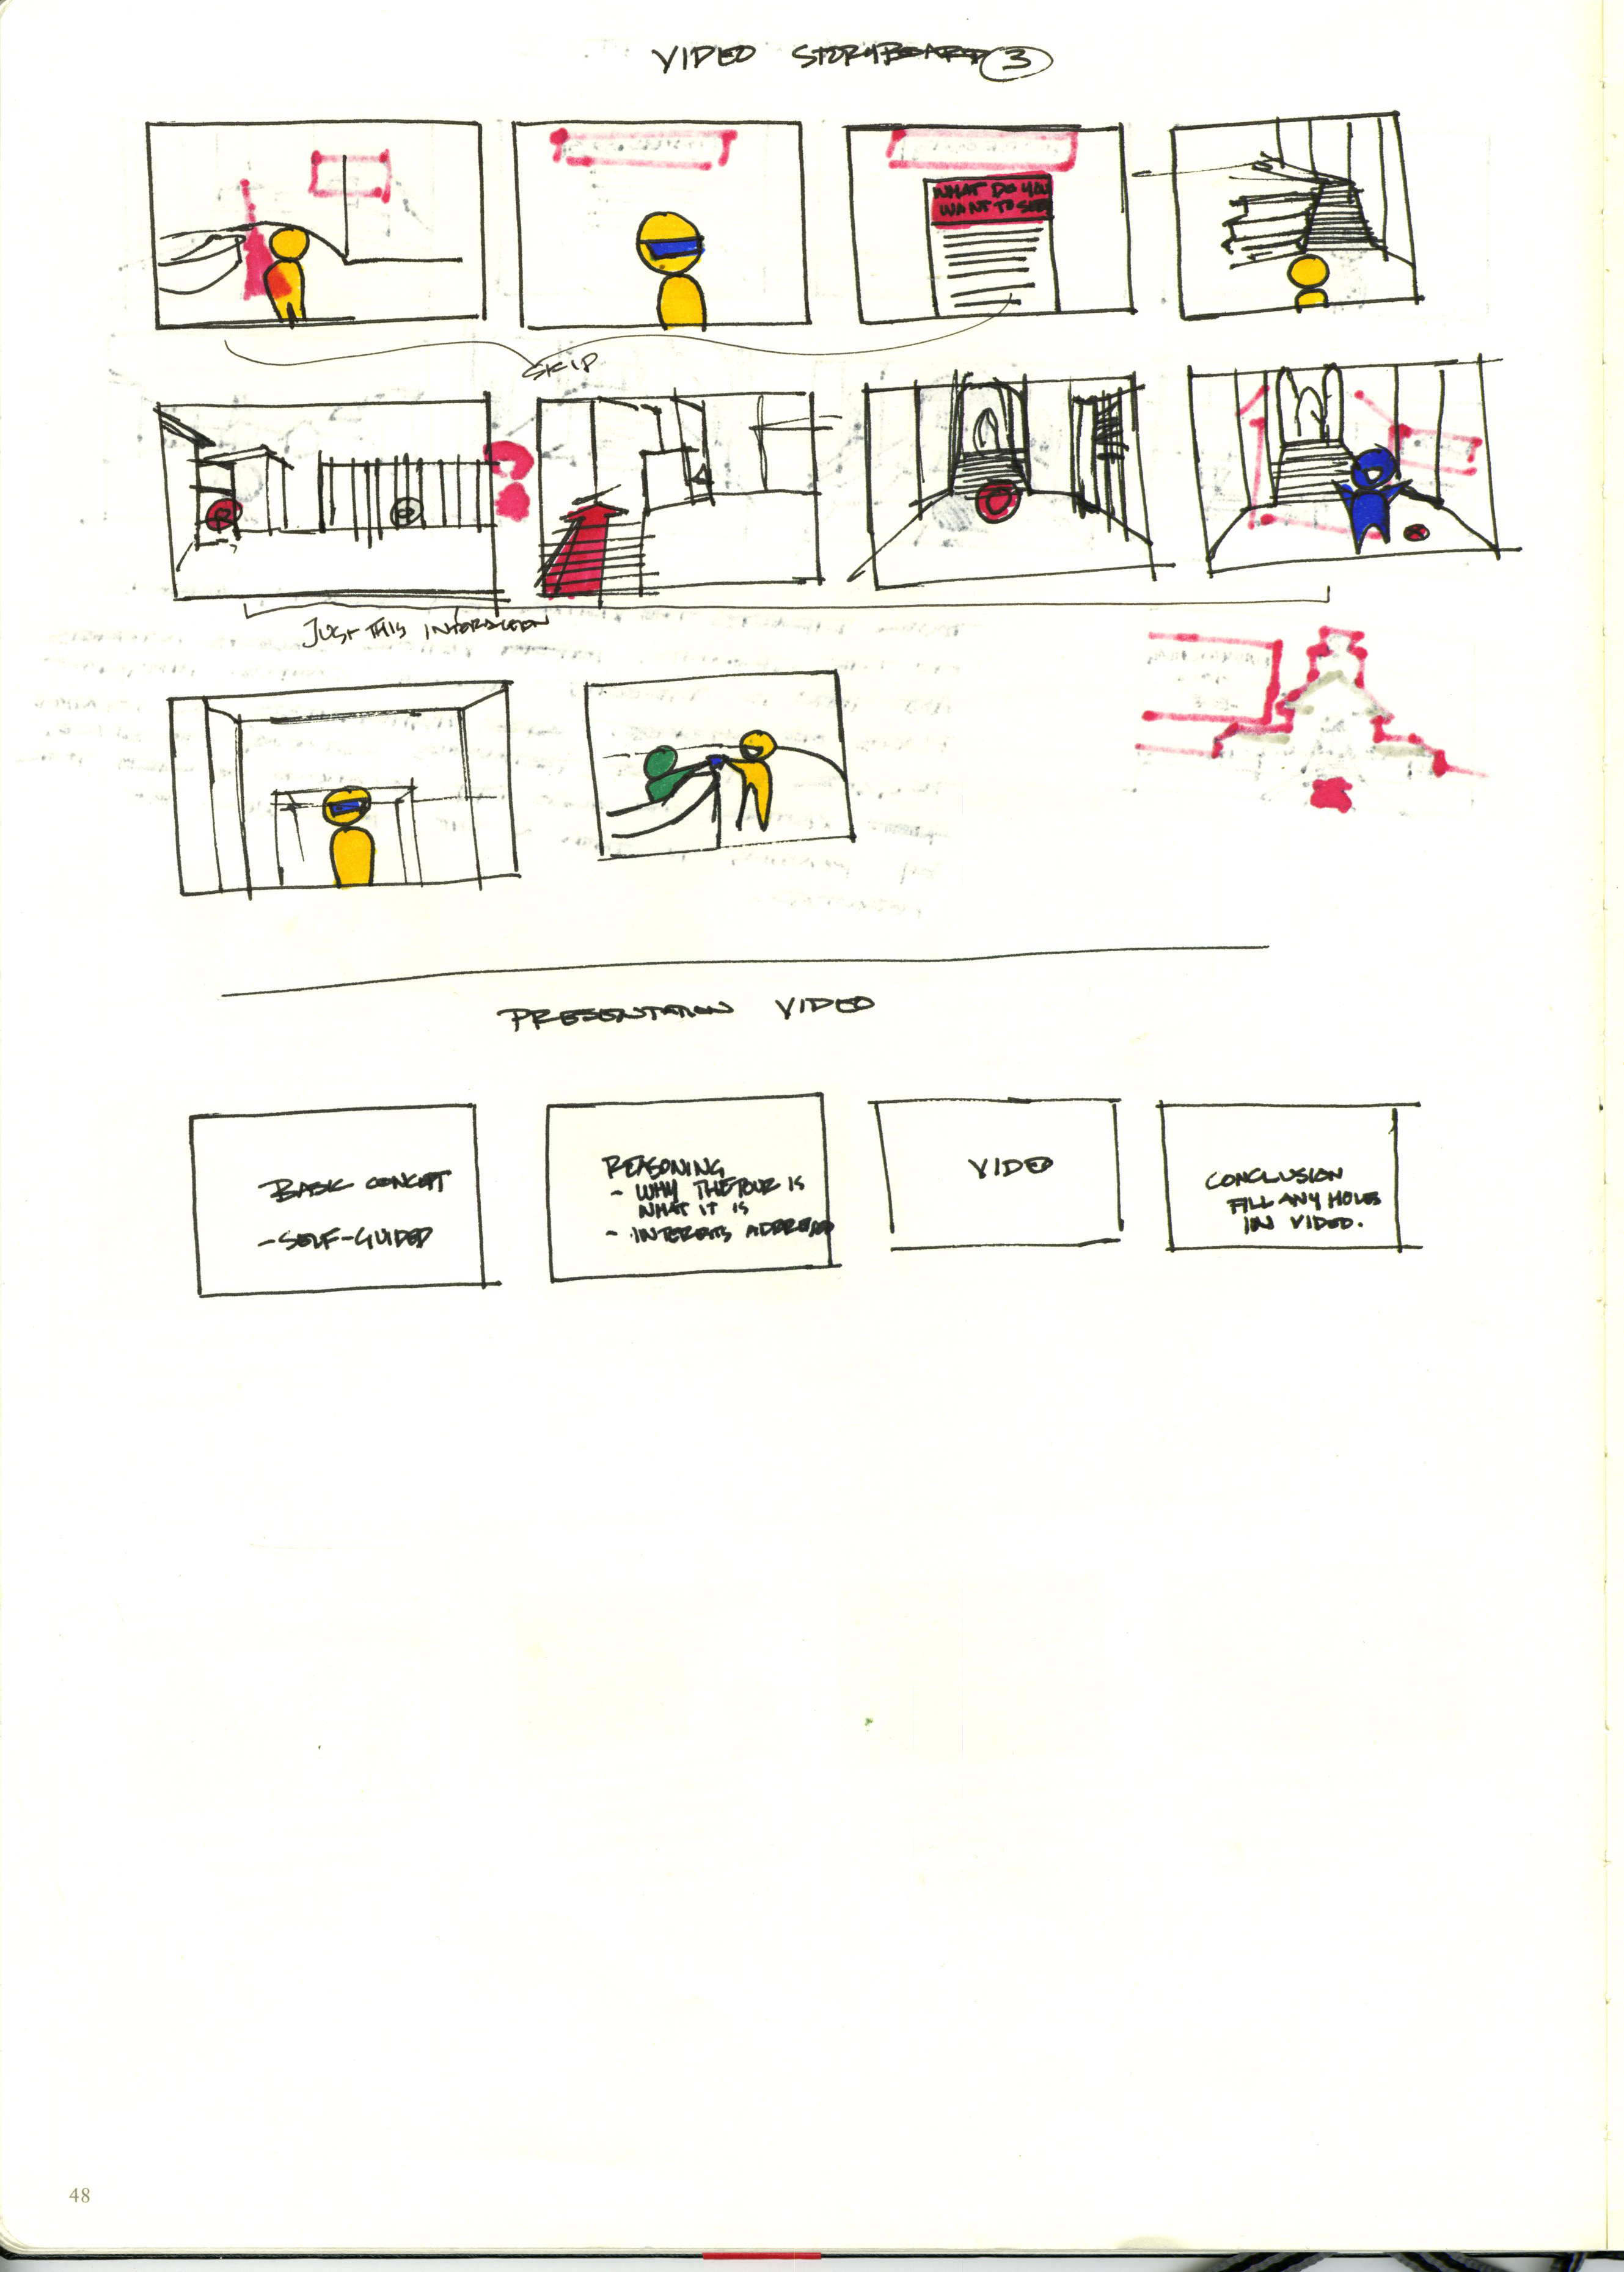 VIDEO STORYBOARD 3
WHAT DO YOU
WANT TO SEE
SKIP
R
JUST THIS INTERACTION
PRESENTATION VIDEO
BASIC CONCEPT
- SELF-GUIDED
REASONING
- WHY THE TOUR IS
WHAT IT IS
- INTERESTS ADDRESSED
VIDEO
CONCLUSION
FILL ANY HOLES
IN VIDEO.
48